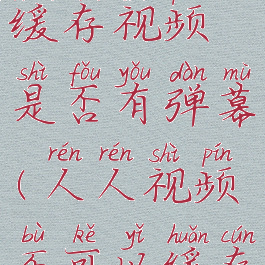 缓存视频
shì fǒu yǒu dàn mù
是否有弹幕
rén rén shì pín
(人人视频
bù kě yǐ huǎn cún
不可以缓存